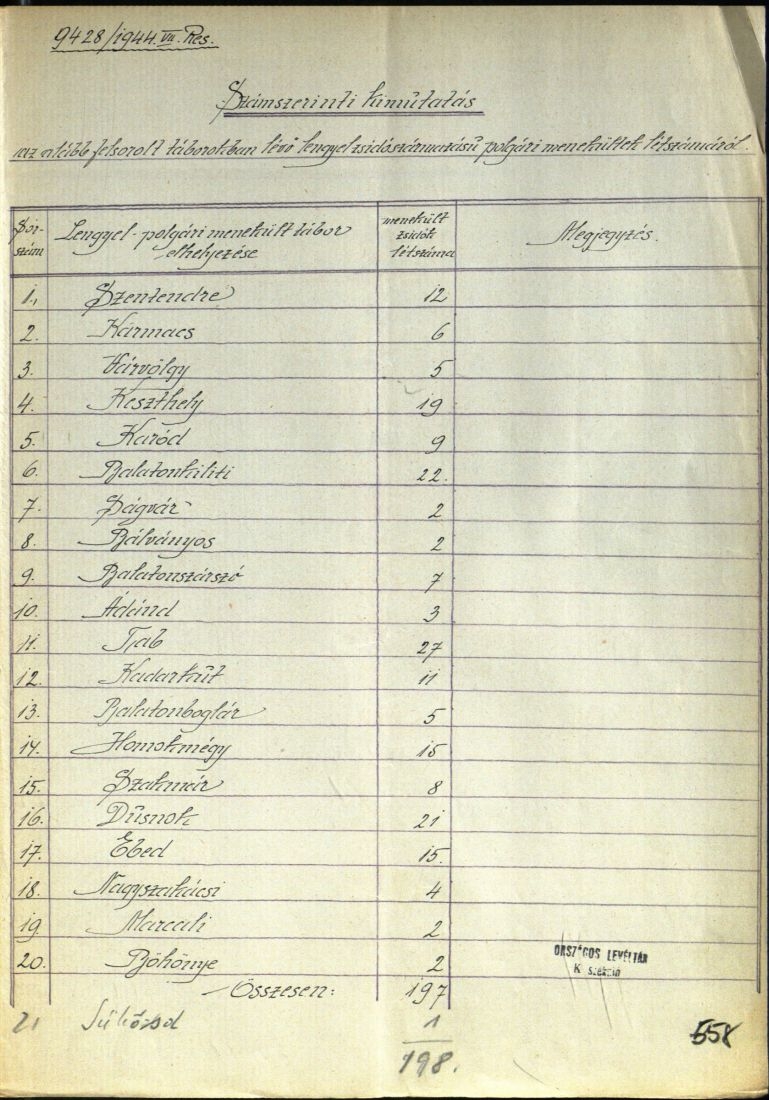 9428/1944.VII.Res.
Számszerinti kimutatás
az alább felsorolt táborokban lévő lengyel zsidószármazású polgári menekültek létszámáról.
Sor-
szám
Lengyel-polgári menekült tábor
elhelyezése
menekült
zsidók
létszáma
Megjegyzés.
1., Szentendre 12
2. Karmacs 6
3. Várvölgy 5
4. Keszthely 19
5. Karód 9
6. Balatonkiliti 22.
7. Ságvár 2
8. Bálványos 2
9. Balatonszárszó 7
10. Ádánd 3
11. Tab 27
12. Kadarkút 11
13. Balatonboglár 5
14. Homokmégy 15
15. Szakmár 8
16. Dusnok 21
17. Ebed 15.
18. Nagyszakácsi 4
19. Marcali 2
20. Böhönye 2
Összesen: 197
21 Sükösd 1
198.
ORSZÁGOS LEVÉLTÁR
K szekció
558